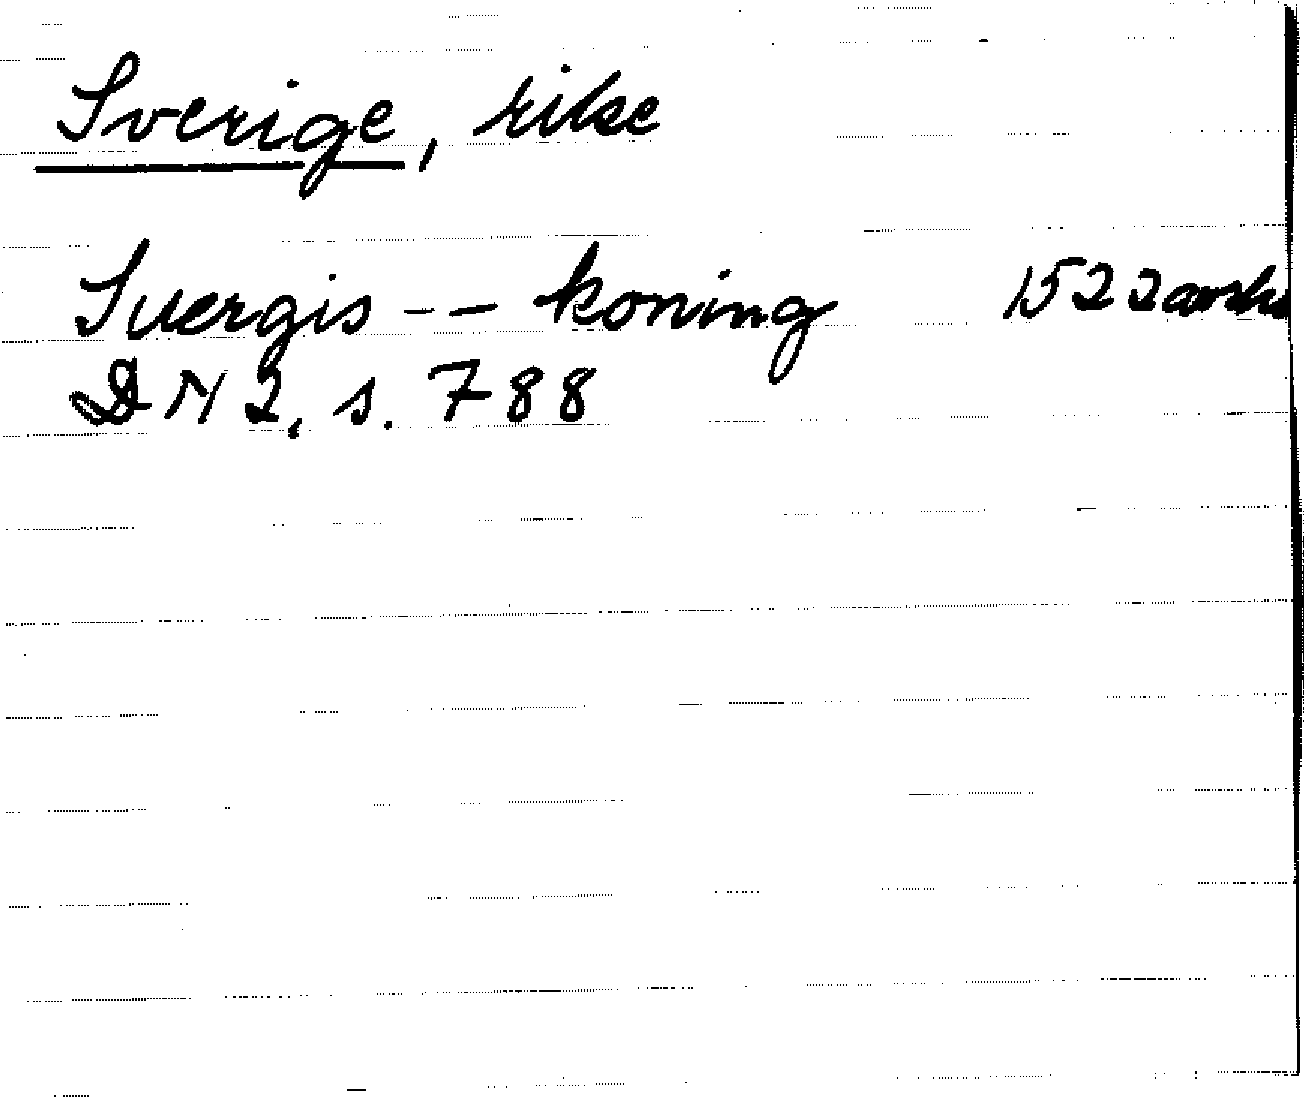 Sverige, rike
Suergis -- koning 1522 avskr
DN 2, s. 788